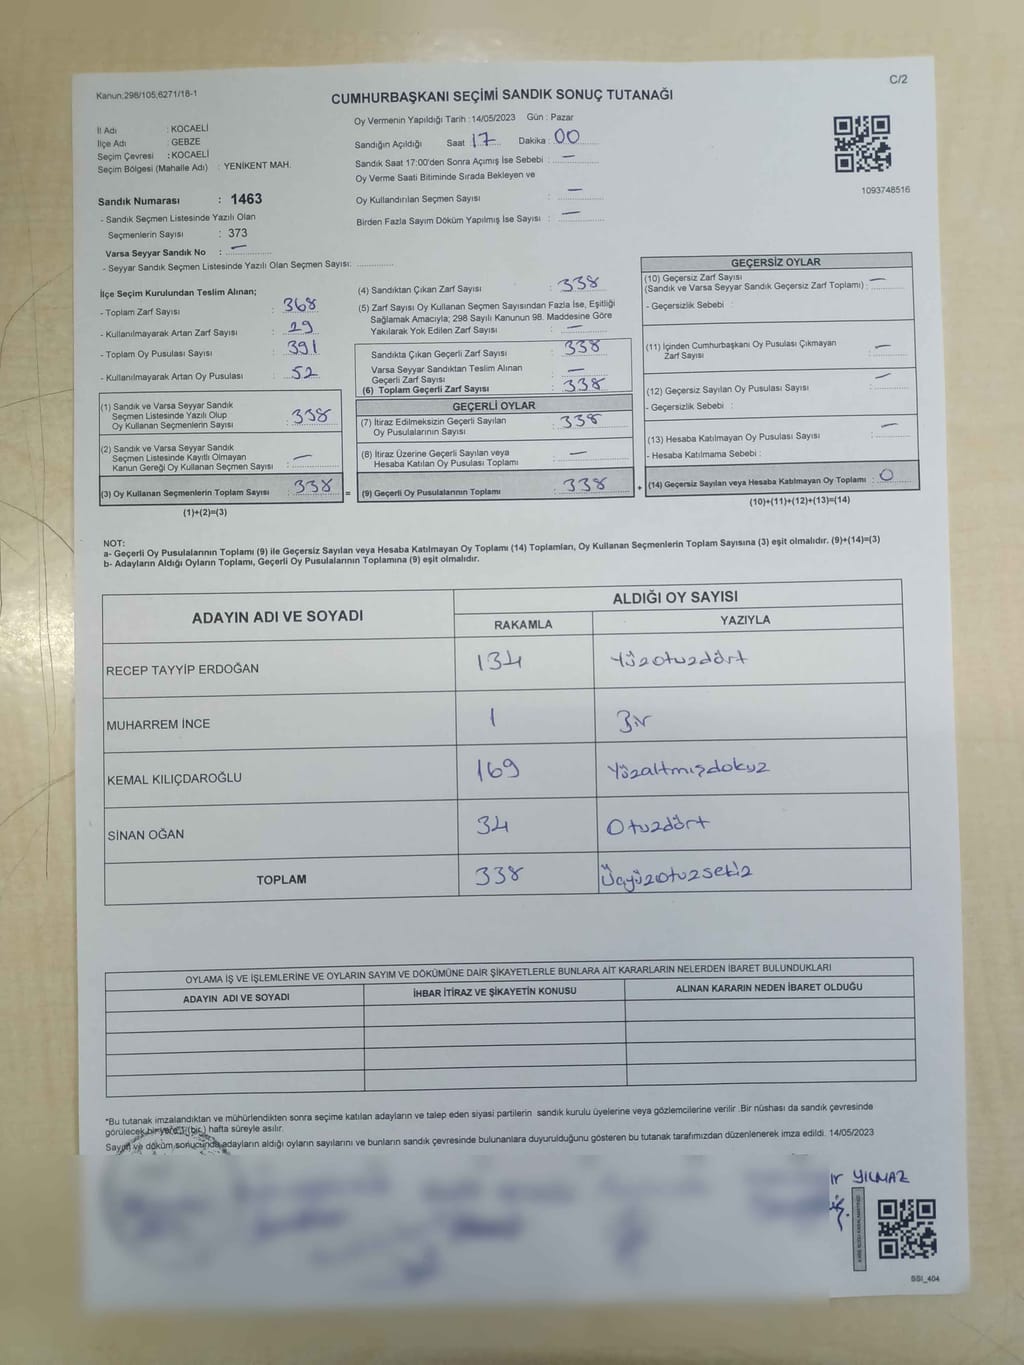 C/2
Kanun:298/105;6271/18-1
CUMHURBAŞKANI SEÇİMİ SANDIK SONUÇ TUTANAĞI
İl Adı : KOCAELİ
İlçe Adı : GEBZE
Seçim Çevresi : KOCAELİ
Seçim Bölgesi (Mahalle Adı) : YENİKENT MAH.
Sandık Numarası : 1463
- Sandık Seçmen Listesinde Yazılı Olan
Seçmenlerin Sayısı : 373
Varsa Seyyar Sandık No : —
- Seyyar Sandık Seçmen Listesinde Yazılı Olan Seçmen Sayısı:
Oy Vermenin Yapıldığı Tarih :14/05/2023 Gün : Pazar
Sandığın Açıldığı Saat 17 Dakika : 00
Sandık Saat 17:00'den Sonra Açımış İse Sebebi : —
Oy Verme Saati Bitiminde Sırada Bekleyen ve
Oy Kullandırılan Seçmen Sayısı : —
Birden Fazla Sayım Döküm Yapılmış İse Sayısı : —
1093748516
İlçe Seçim Kurulundan Teslim Alınan;
- Toplam Zarf Sayısı : 368
- Kullanılmayarak Artan Zarf Sayısı : 29
- Toplam Oy Pusulası Sayısı : 391
- Kullanılmayarak Artan Oy Pusulası : 52
(1) Sandık ve Varsa Seyyar Sandık
Seçmen Listesinde Yazılı Olup
Oy Kullanan Seçmenlerin Sayısı : 338
(2) Sandık ve Varsa Seyyar Sandık
Seçmen Listesinde Kayıtlı Olmayan
Kanun Gereği Oy Kullanan Seçmen Sayısı : —
(3) Oy Kullanan Seçmenlerin Toplam Sayısı : 338
(1)+(2)=(3)
(4) Sandıktan Çıkan Zarf Sayısı : 338
(5) Zarf Sayısı Oy Kullanan Seçmen Sayısından Fazla İse, Eşitliği
Sağlamak Amacıyla; 298 Sayılı Kanunun 98. Maddesine Göre
Yakılarak Yok Edilen Zarf Sayısı : —
Sandıkta Çıkan Geçerli Zarf Sayısı : 338
Varsa Seyyar Sandıktan Teslim Alınan
Geçerli Zarf Sayısı : —
(6) Toplam Geçerli Zarf Sayısı : 338
GEÇERLİ OYLAR
(7) İtiraz Edilmeksizin Geçerli Sayılan
Oy Pusulalarının Sayısı : 338
(8) İtiraz Üzerine Geçerli Sayılan veya
Hesaba Katılan Oy Pusulası Toplamı : —
= (9) Geçerli Oy Pusulalarının Toplamı : 338
GEÇERSİZ OYLAR
(10) Geçersiz Zarf Sayısı
(Sandık ve Varsa Seyyar Sandık Geçersiz Zarf Toplamı) : —
- Geçersizlik Sebebi :
(11) İçinden Cumhurbaşkanı Oy Pusulası Çıkmayan
Zarf Sayısı : —
(12) Geçersiz Sayılan Oy Pusulası Sayısı : —
- Geçersizlik Sebebi :
(13) Hesaba Katılmayan Oy Pusulası Sayısı : —
- Hesaba Katılmama Sebebi :
+ (14) Geçersiz Sayılan veya Hesaba Katılmayan Oy Toplamı : 0
(10)+(11)+(12)+(13)=(14)
NOT:
a- Geçerli Oy Pusulalarının Toplamı (9) ile Geçersiz Sayılan veya Hesaba Katılmayan Oy Toplamı (14) Toplamları, Oy Kullanan Seçmenlerin Toplam Sayısına (3) eşit olmalıdır. (9)+(14)=(3)
b- Adayların Aldığı Oyların Toplamı, Geçerli Oy Pusulalarının Toplamına (9) eşit olmalıdır.
ADAYIN ADI VE SOYADI ALDIĞI OY SAYISI
RAKAMLA YAZIYLA
RECEP TAYYİP ERDOĞAN 134 Yüzotuzdört
MUHARREM İNCE 1 Bir
KEMAL KILIÇDAROĞLU 169 Yüzaltmışdokuz
SİNAN OĞAN 34 Otuzdört
TOPLAM 338 Üçyüzotuzsekiz
OYLAMA İŞ VE İŞLEMLERİNE VE OYLARIN SAYIM VE DÖKÜMÜNE DAİR ŞİKAYETLERLE BUNLARA AİT KARARLARIN NELERDEN İBARET BULUNDUKLARI
ADAYIN ADI VE SOYADI İHBAR İTİRAZ VE ŞİKAYETİN KONUSU ALINAN KARARIN NEDEN İBARET OLDUĞU
*Bu tutanak imzalandıktan ve mühürlendikten sonra seçime katılan adayların ve talep eden siyasi partilerin sandık kurulu üyelerine veya gözlemcilerine verilir .Bir nüshası da sandık çevresinde
görülecek bir yere 1 (bir) hafta süreyle asılır.
Sayım ve döküm sonucunda adayların aldığı oyların sayılarını ve bunların sandık çevresinde bulunanlara duyurulduğunu gösteren bu tutanak tarafımızdan düzenlenerek imza edildi. 14/05/2023
YILMAZ
SSI_404